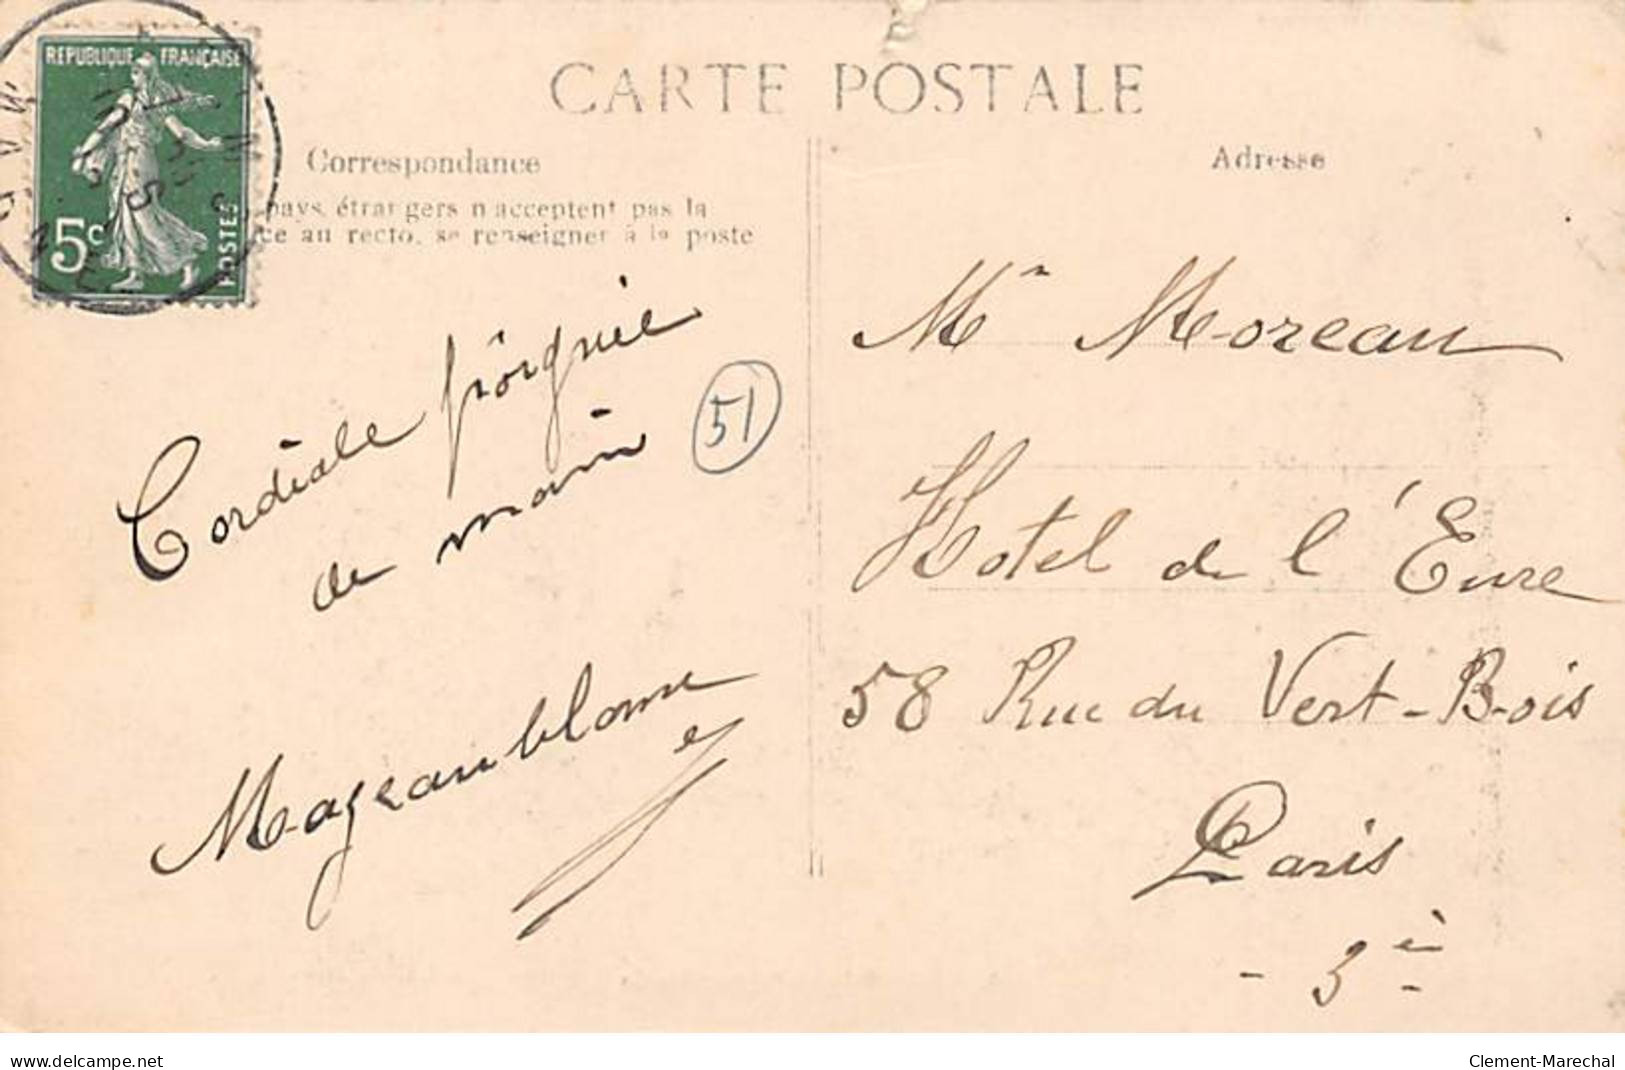 RÉPUBLIQUE FRANÇAISE
5c
POSTES
CARTE POSTALE
Correspondance
pays étrangers n'acceptent pas la
ce au recto, se renseigner à la poste
Cordiale poignée
de main
51
Adresse
Mr Moreau
Hotel de l'Eure
58 Rue du Vert-Bois
Paris
- 3è -
www.delcampe.net
Clement-Marechal